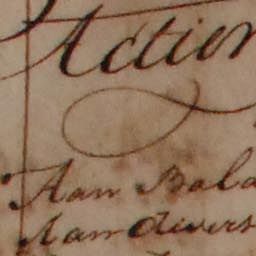 Action
Aan Bala
Aan divers